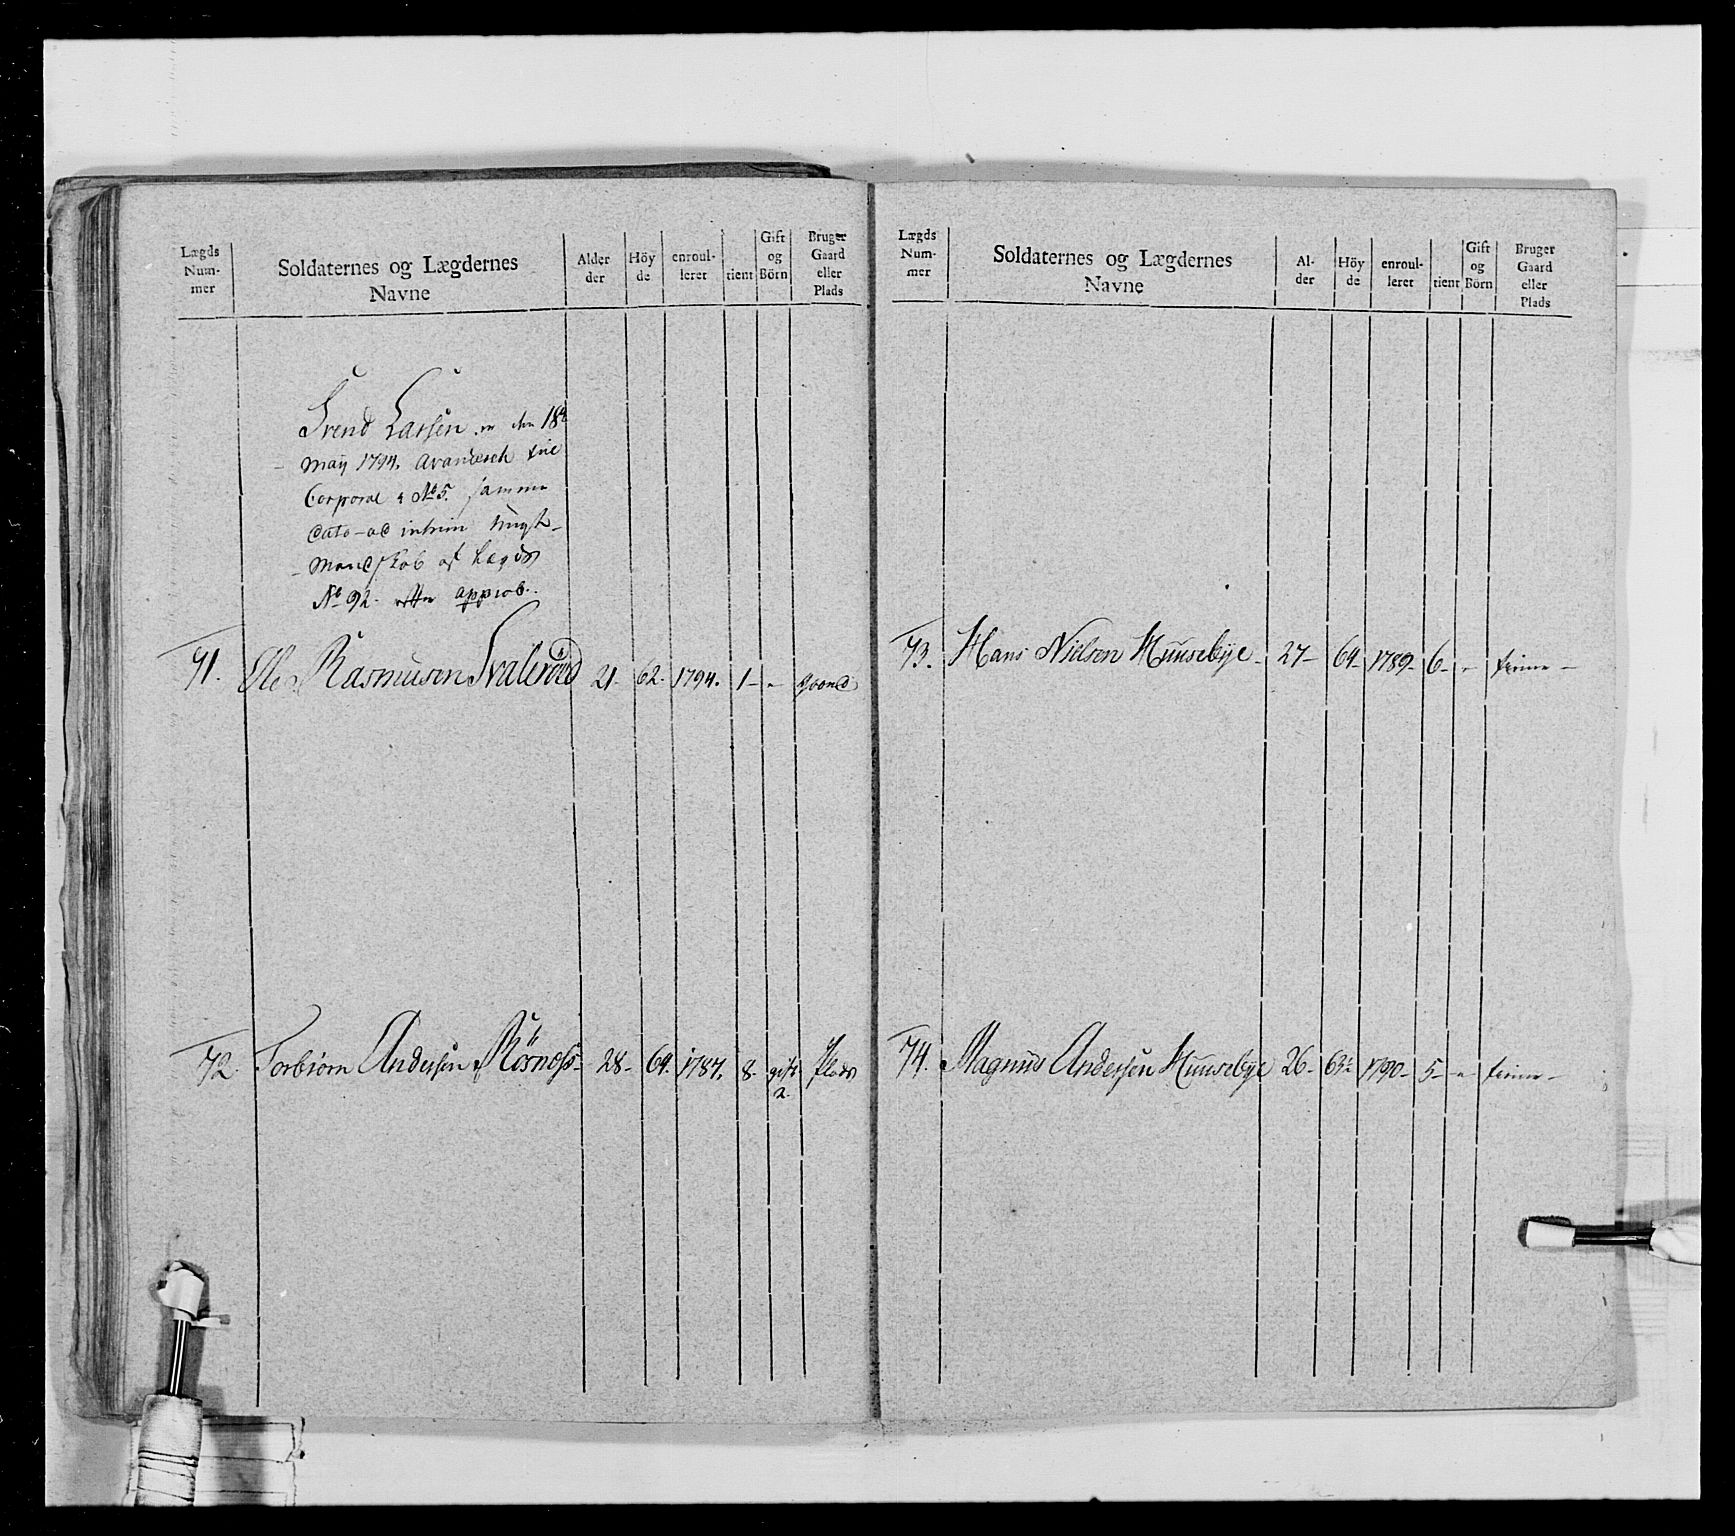 Lægds Num- mer
Soldaternes og Lægdernes Navne
Alder der
Höy de
enroul- leret
tient
Gift og Börn
Bruger Gaard eller Plads
Svend Larsen er den 18de
May 1794. Avanseseh til
Corporal a No 5. samme
dato ad intrim
Mandskob af Lægds
No 92. efter approb.
71. Ole Rasmusen Svaleröd 21- 62- 1794. 1- - gaard
72. Torbiörn Andersen Rösnæss- 28- 64. 1787. 8- gift 2. Plads
Lægds Num- mer
Soldaternes og Lægdernes Navne
Al- der
Höy de
enroul- leret
tient
Gift og Börn
Bruger Gaard eller Plads
73. Hans Nielsen Huusebye- 27- 64- 1789- 6- - tiener-
74. Magnus Andersen Huusebye 26- 63½ 1790- 5- - tiener-